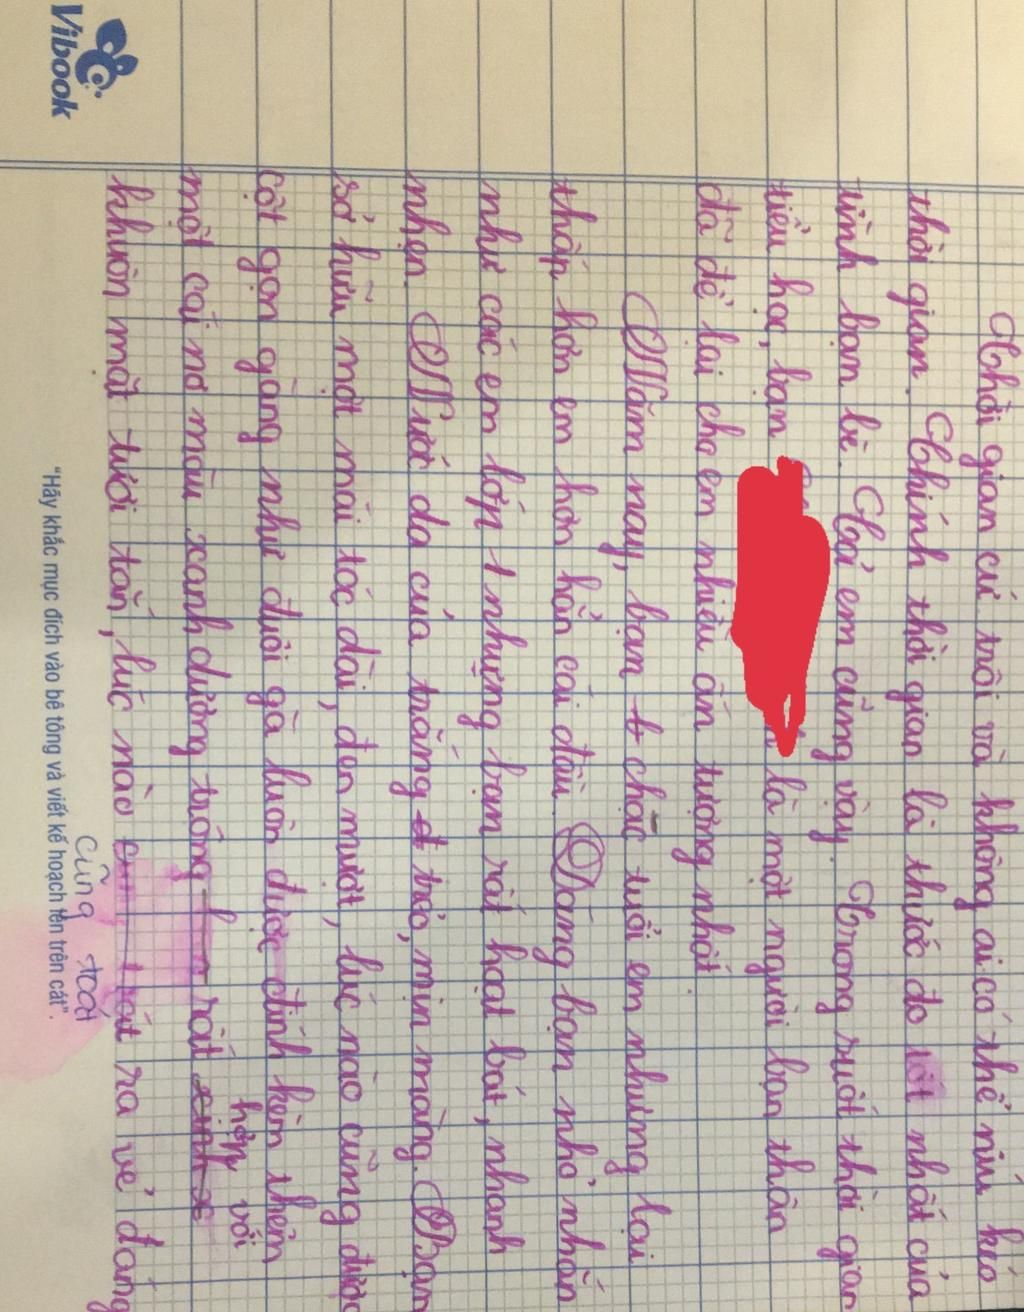 Thời gian cứ trôi và không ai có thể níu kéo
thời gian. Chính thời gian là thước đo tốt nhất của
tình bạn bè. Cả em cũng vậy. Trong suốt thời gian
tiểu học, bạn là một người bạn thân
đã để lại cho em nhiều ấn tượng nhất.
Năm nay, bạn chạc tuổi em nhưng lại
thấp hơn em hơn hẳn cái đầu. Dáng bạn nhỏ nhắn
như các em lớp 1 nhưng bạn rất hoạt bát, nhanh
nhẹn. Nước da của trắng trẻo, mịn màng. Bạn
sở hữu một mái tóc dài, đen mượt, lúc nào cũng được
cột gọn gàng như đuôi gà luôn được đính kèm thêm
một cái nơ màu xanh dương trông rất hợp với
khuôn mặt tươi tắn, lúc nào cũng toát ra vẻ đáng
"Hãy khắc mục đích vào bê tông và viết kế hoạch lên trên cát".
Vibook